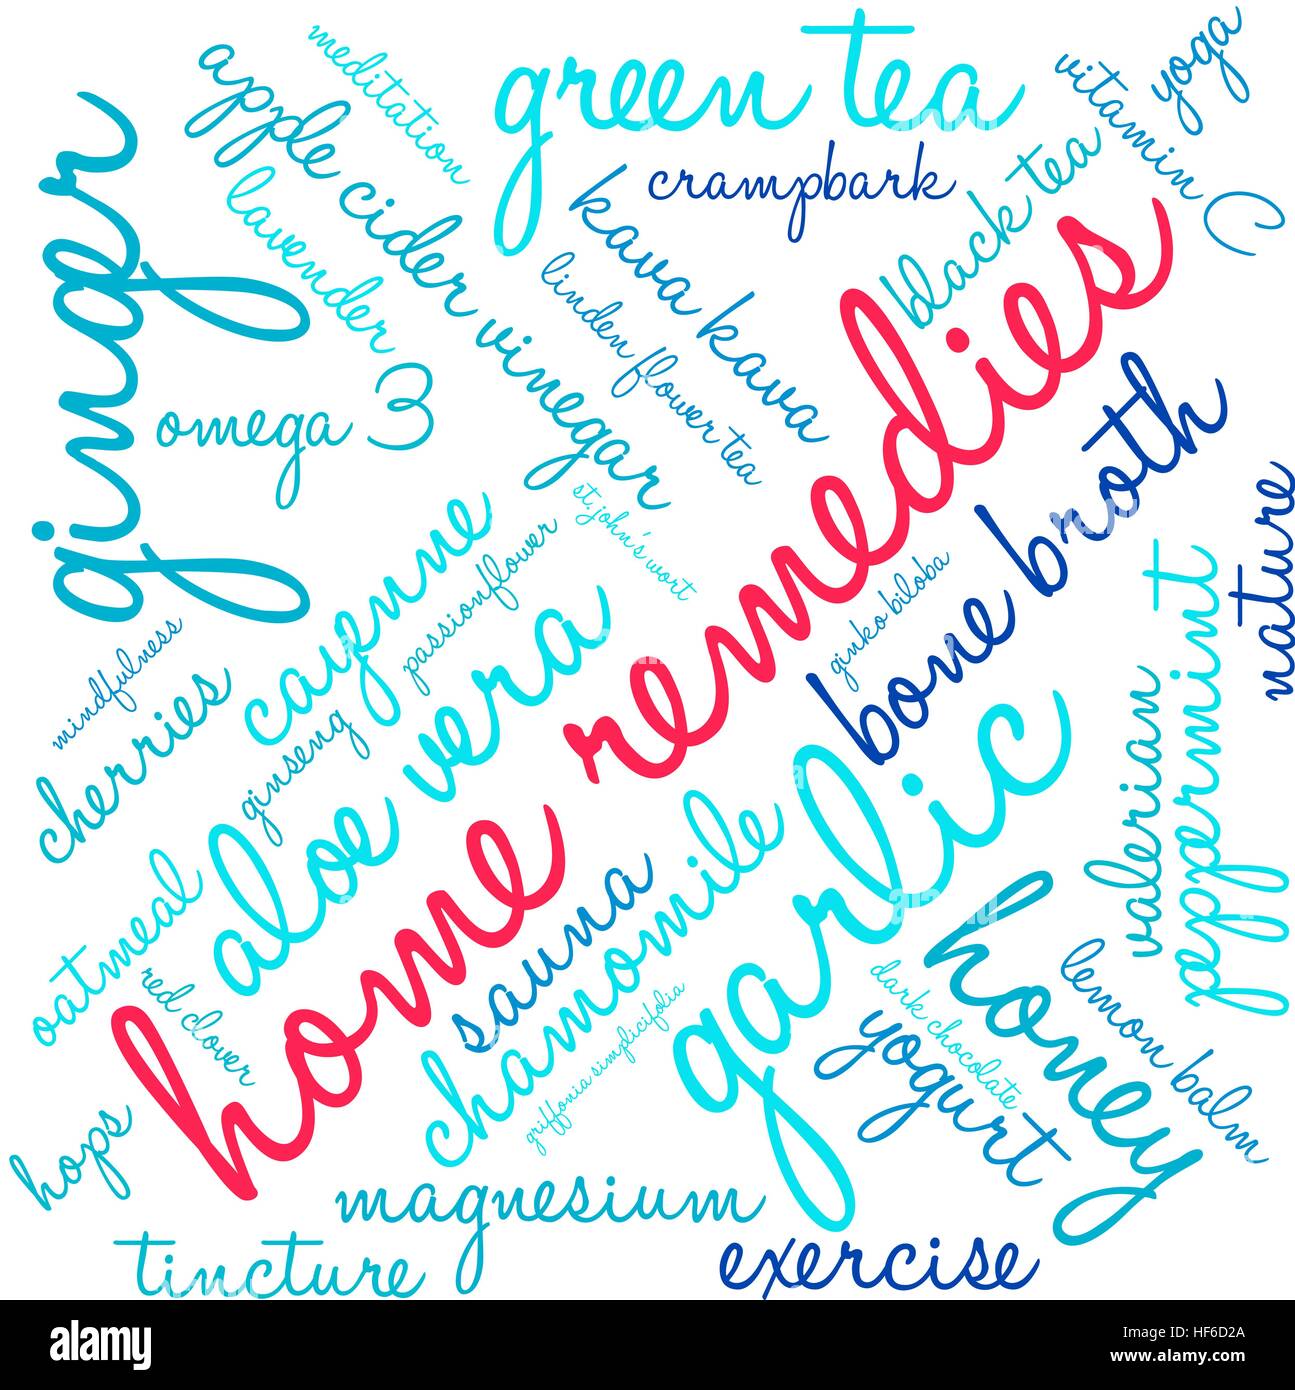 meditation
green tea
yoga
vitamin C
apple cider vinegar
ginger
crampbark
black tea
lavender
kava kava
linden flower tea
omega 3
home remedies
bone broth
nature
st. john's wort
cayenne
passionflower
ginko biloba
peppermint
mindfulness
cherries
ginseng
aloe vera
valerian
garlic
chamomile
sauna
honey
oatmeal
red clover
griffonia simplicifolia
dark chocolate
yogurt
lemon balm
hops
magnesium
tincture
exercise
alamy
Image ID: HF6D2A
www.alamy.com
a alamy stock photo